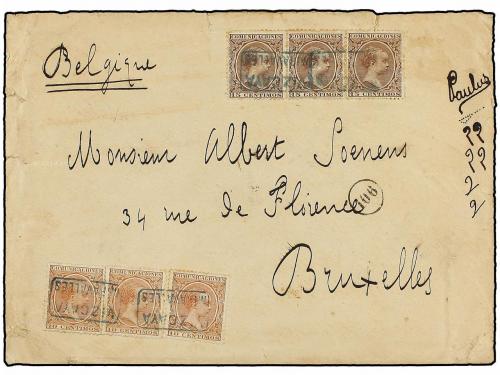 COMUNICACIONES COMUNICACIONES COMUNICACIONES
15 CENTIMOS 15 CENTIMOS 15 CENTIMOS
Belgique
Monsieur Albert Soenens
34 rue de Florence
106
Bruxelles
22
22
2
2
COMUNICACIONES COMUNICACIONES COMUNICACIONES
VIZCAYA
10 CENTIMOS 10 CENTIMOS 10 CENTIMOS